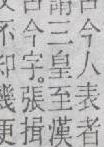 古今人表者
謂三皇至漢
古今字。張揖
不知幾更